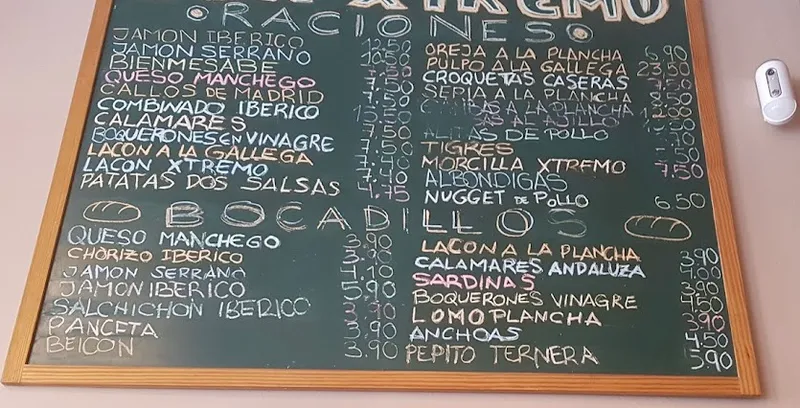 XTREMO
RACIONES
JAMON IBERICO 12.50
JAMON SERRANO 10.50
BIENMESABE
QUESO MANCHEGO
CALLOS DE MADRID 7.50
COMBINADO IBERICO 15.50
CALAMARES 7.50
BOQUERONES EN VINAGRE 7.50
LACON A LA GALLEGA
LACON XTREMO 7.40
PATATAS DOS SALSAS 4.75
OREJA A LA PLANCHA 6.90
PULPO A LA GALLEGA 23.50
CROQUETAS CASERAS
SEPIA A LA PLANCHA
A LA PLANCHA
AL AJILLO
ALITAS DE POLLO
TIGRES
MORCILLA XTREMO 7.50
ALBONDIGAS
NUGGET DE POLLO 6.50
BOCADILLOS
QUESO MANCHEGO 3.90
CHORIZO IBERICO 3.90
JAMON SERRANO 4.10
JAMON IBERICO 5.90
SALCHICHON IBERICO 3.90
PANCETA 3.90
BEICON 3.90
LACON A LA PLANCHA 3.90
CALAMARES ANDALUZA 4.00
SARDINAS 3.90
BOQUERONES VINAGRE 4.50
LOMO PLANCHA 3.90
ANCHOAS 4.50
PEPITO TERNERA 5.90